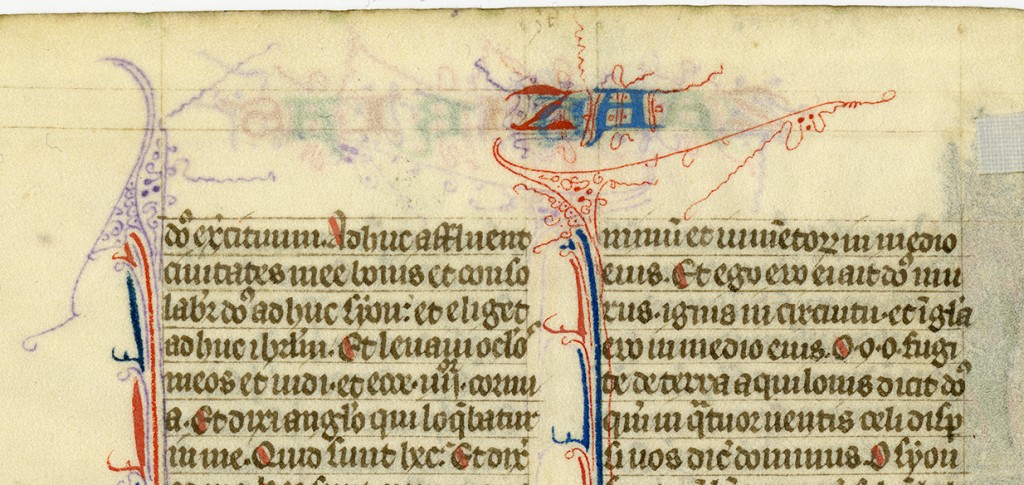 ZA
dō excituum. Adhuc affluent
ciuitates mee bonis et conso
labr̄ dō adhuc syon: et eliget
adhuc ihrlm. Et leuaui oclo
meos et uidi. et ecce. iiij. cornu
a. Et dixi anglo qui loq̄batur
in me. Quid sunt hec. Et dix̄
minū et iumētoꝝ in medio
eius. Et ego ero ei ait dō mu
rus. ignis in circuitu. et ī gla
ero in medio eius. O. o. o. fugi
te de terra aquilonis dicit dō
qm̄ in q̄tuor uentis celi disp
si uos dic̄ dominus. O syon